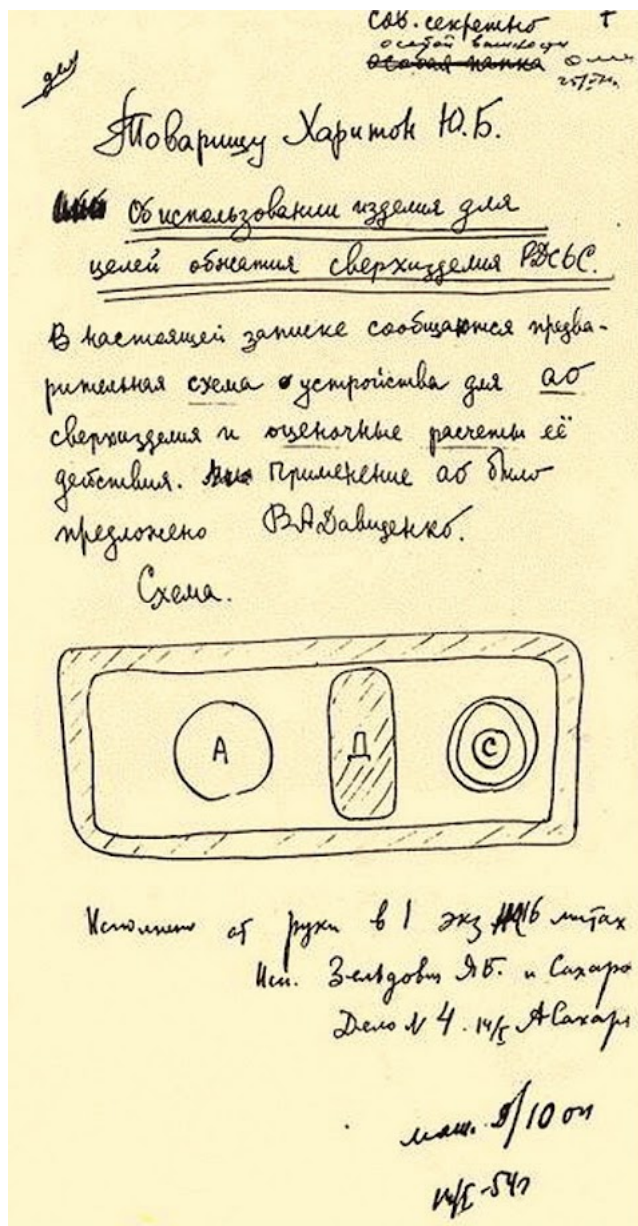 Сов. секретно
особой важности
Особая папка
Товарищу Харитон Ю.Б.
Об использовании изделия для
целей обжатия сверхизделия РДС6С.
В настоящей записке сообщаются предва-
рительная схема устройства для аб
сверхизделия и оценочные расчеты её
действия. Применение аб было
предложено В.А Давиденко.
Схема.
А Д С
Исполнено от руки в 1 экз 16 листах
Исп. Зельдович Я.Б. и Сахаро
Дело N 4. 14/I АСахаро
14/I-54г